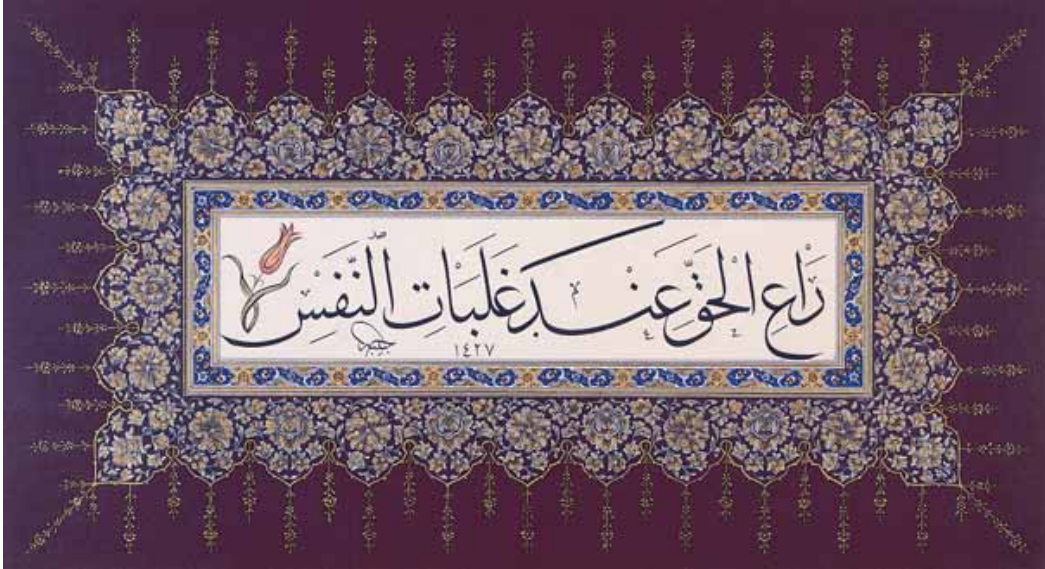 رَاعِ الْحَقَّ عِنْدَ غَلَبَاتِ النَّفْسِ
١٤٢٧